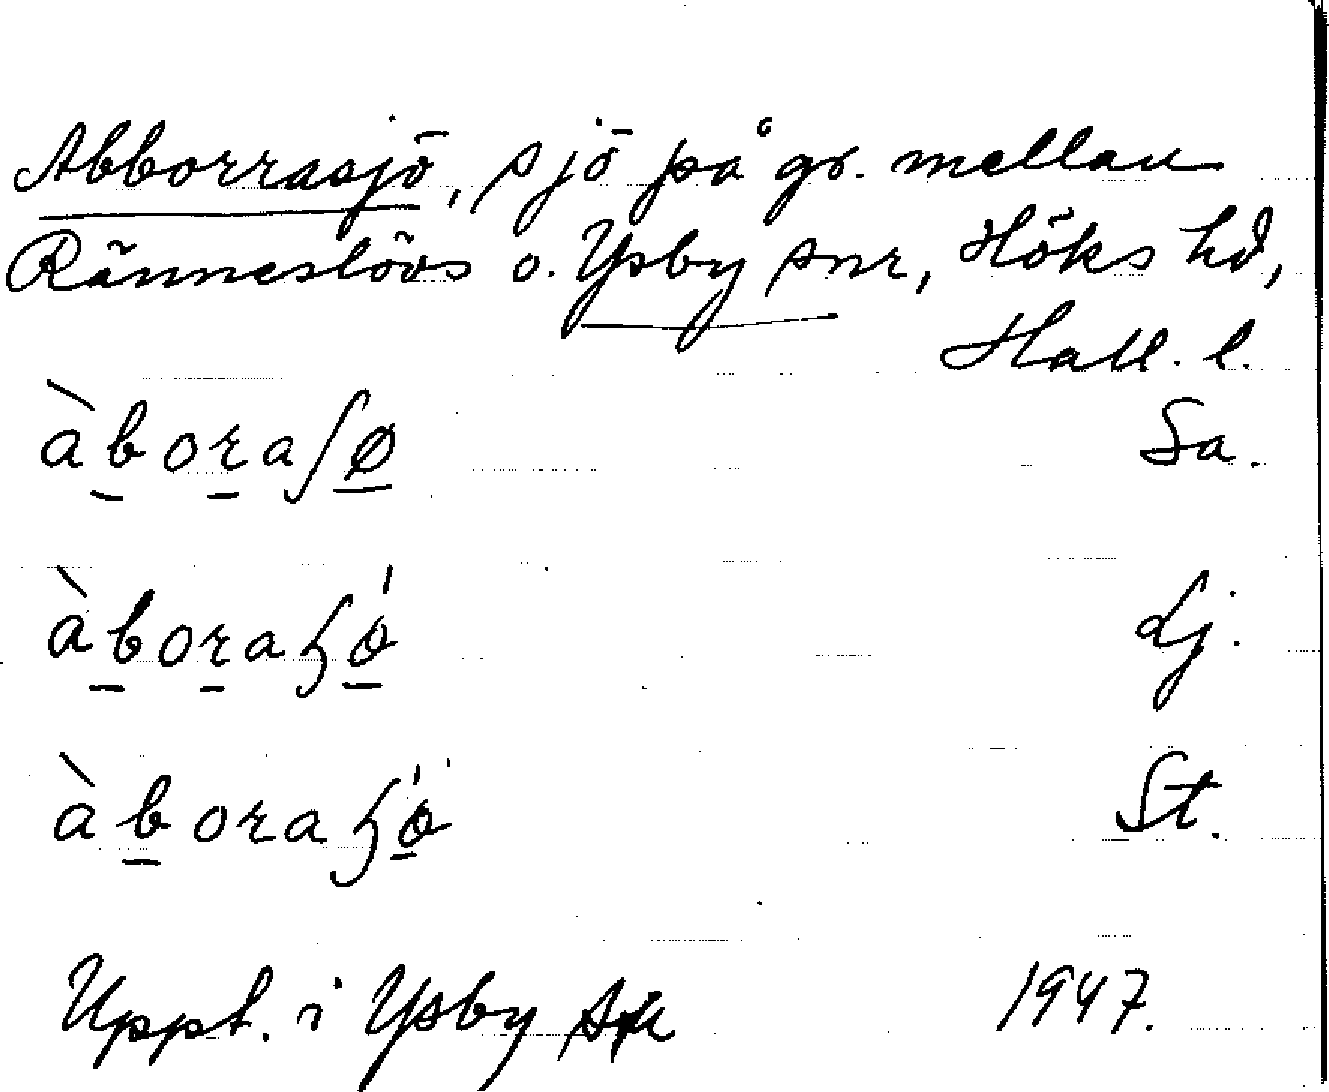 Abborrasjö, sjö på gr. mellan
Ränneslövs o. Ysby snr, Höks hd,
Hall. l.
àboraʃø Sa.
àboraɧǿ Lj.
àboraɧǿ St.
Uppt. i Ysby sn 1947.